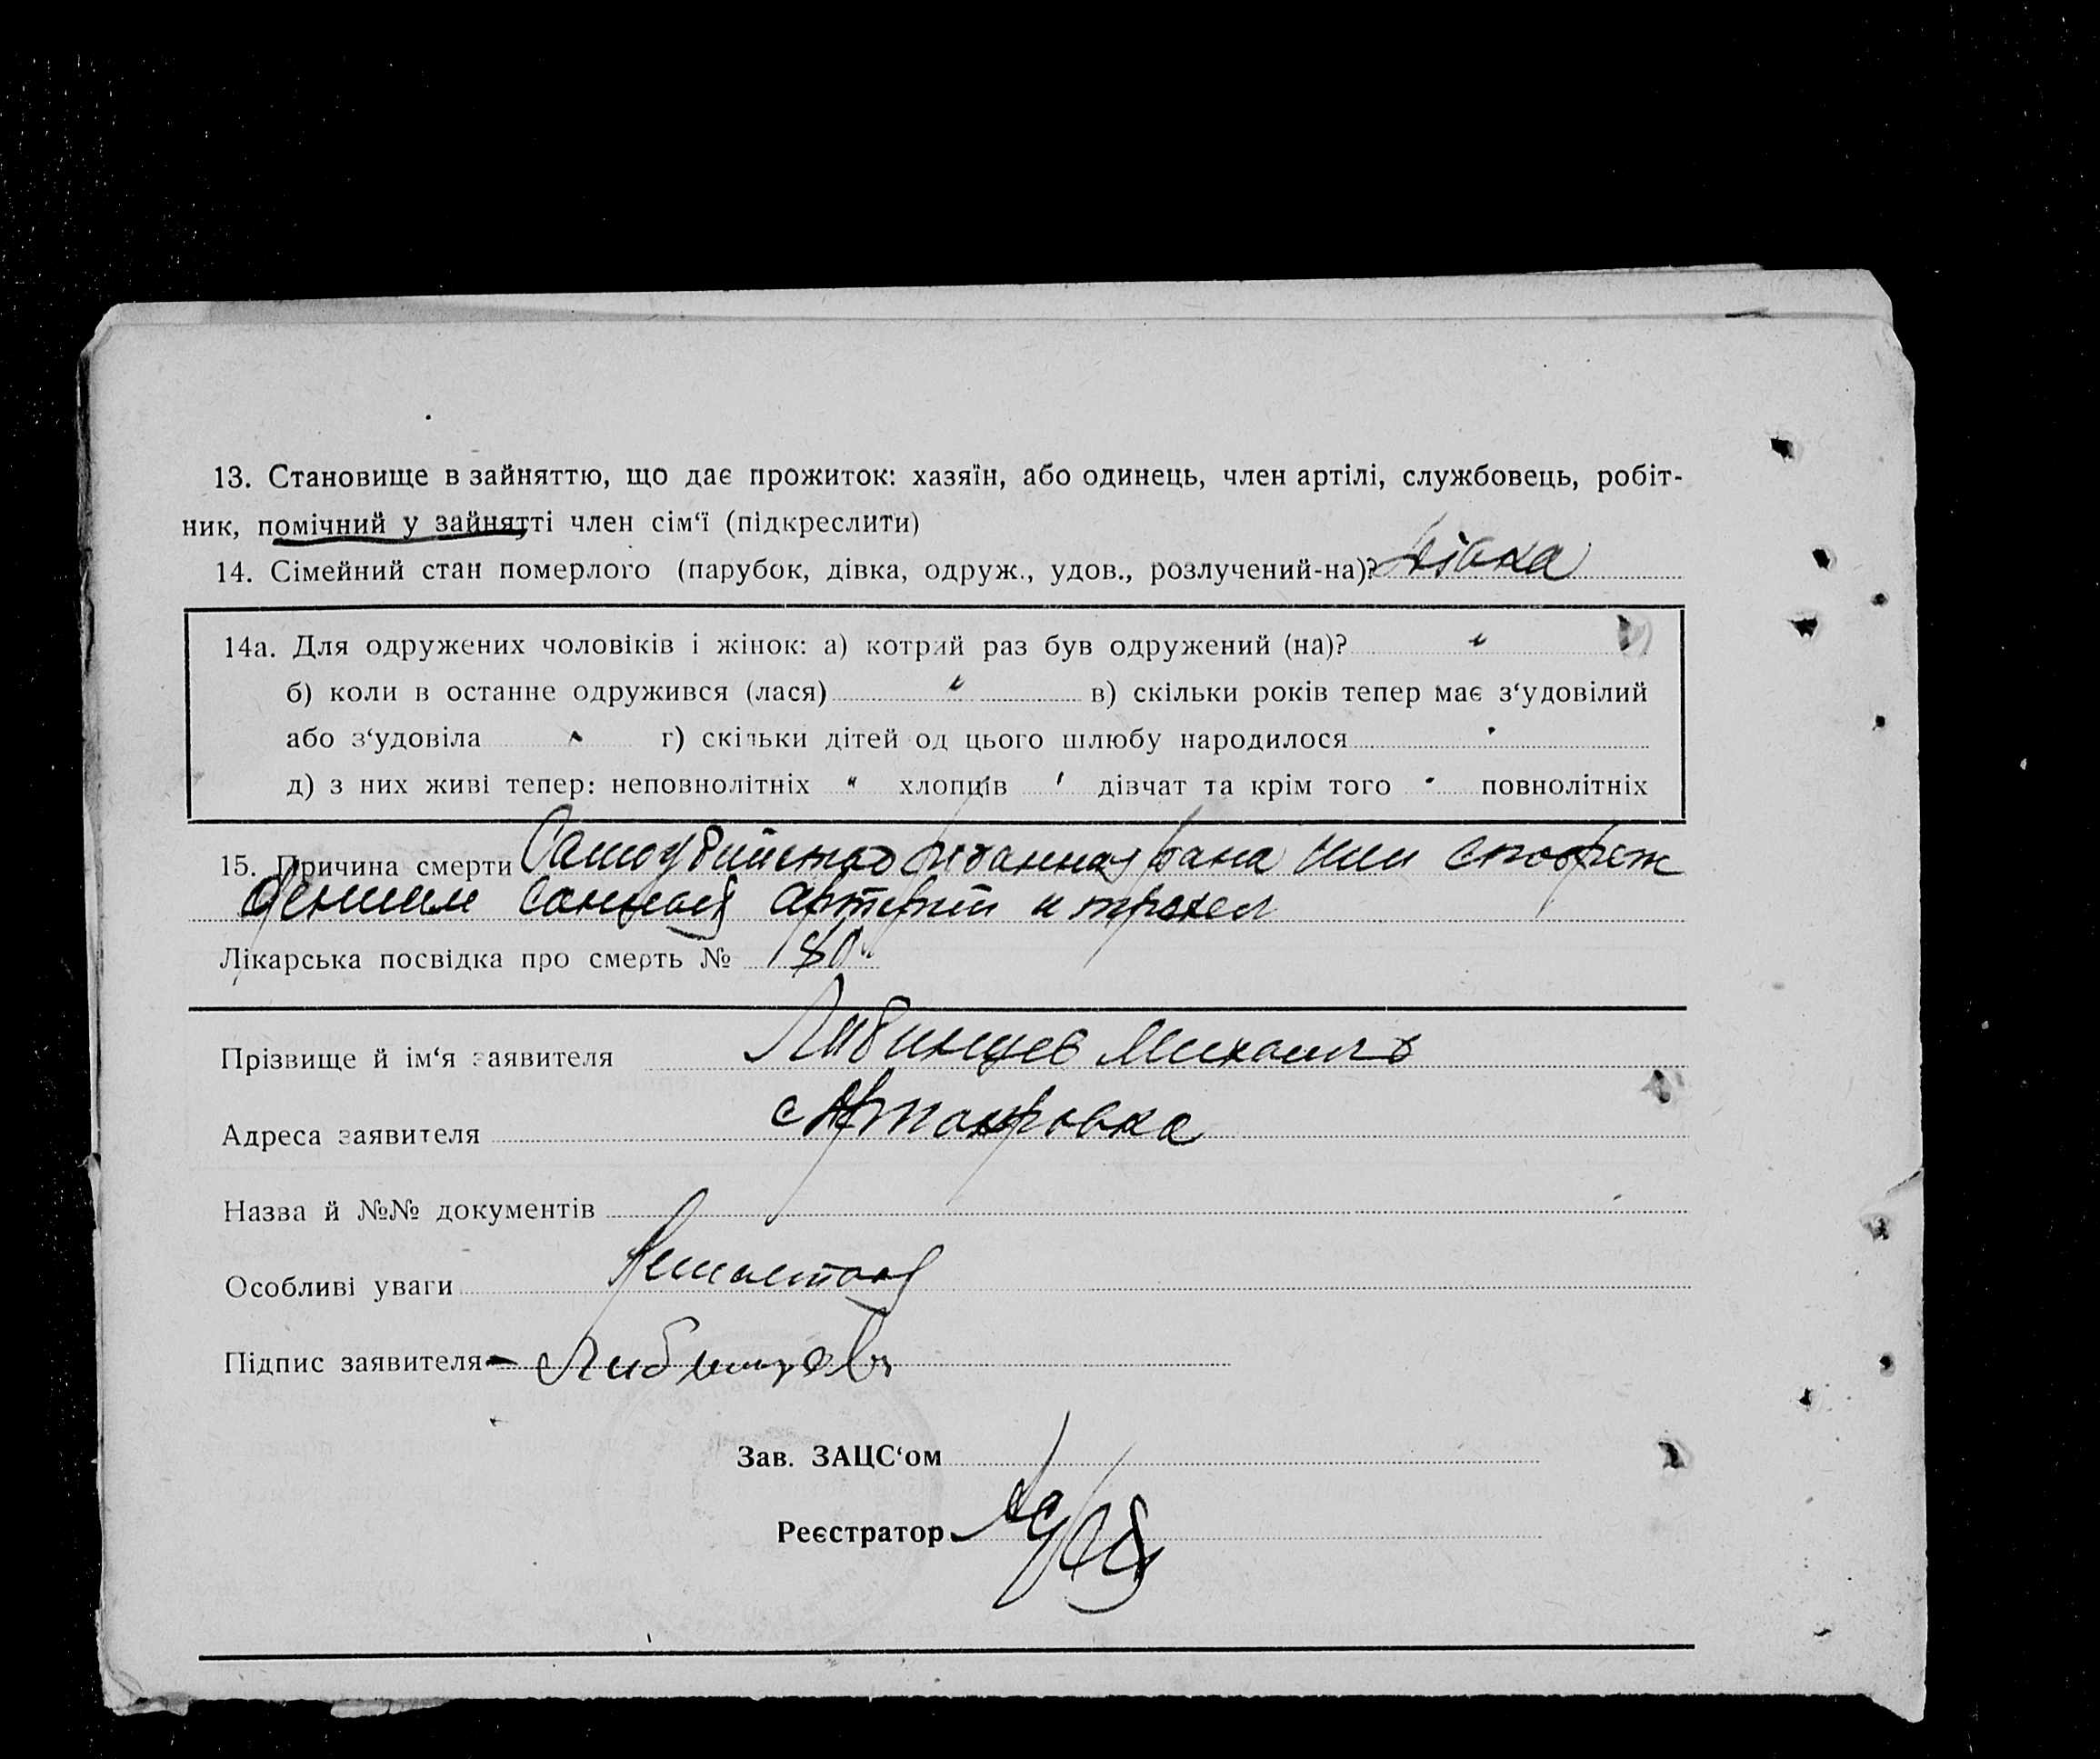 13. Становище в зайняттю, що дає прожиток: хазяїн, або одинець, член артілі, службовець, робіт-
ник, помічний у зайнятті член сім‘ї (підкреслити)
14. Сімейний стан померлого (парубок, дівка, одруж., удов., розлучений-на)? дівка
14а. Для одружених чоловіків і жінок: а) котрий раз був одружений (на)? "
б) коли в останне одружився (лася) " в) скільки років тепер має з‘удовілий
або з‘удовіла " г) скільки дітей од цього шлюбу народилося "
д) з них живі тепер: неповнолітніх " хлопців " дівчат та крім того " повнолітніх
15. Причина смерти Самоубийство резанная рана шеи с повреж
дением сонной артерии и трахеи
Лікарська посвідка про смерть № 80
Прізвище й ім‘я заявителя Либинцев Михаил
Адреса заявителя с
Назва й №№ документів
Особливі уваги
Підпис заявителя - Либинцев
Зав. ЗАЦС‘ом
Реєстратор